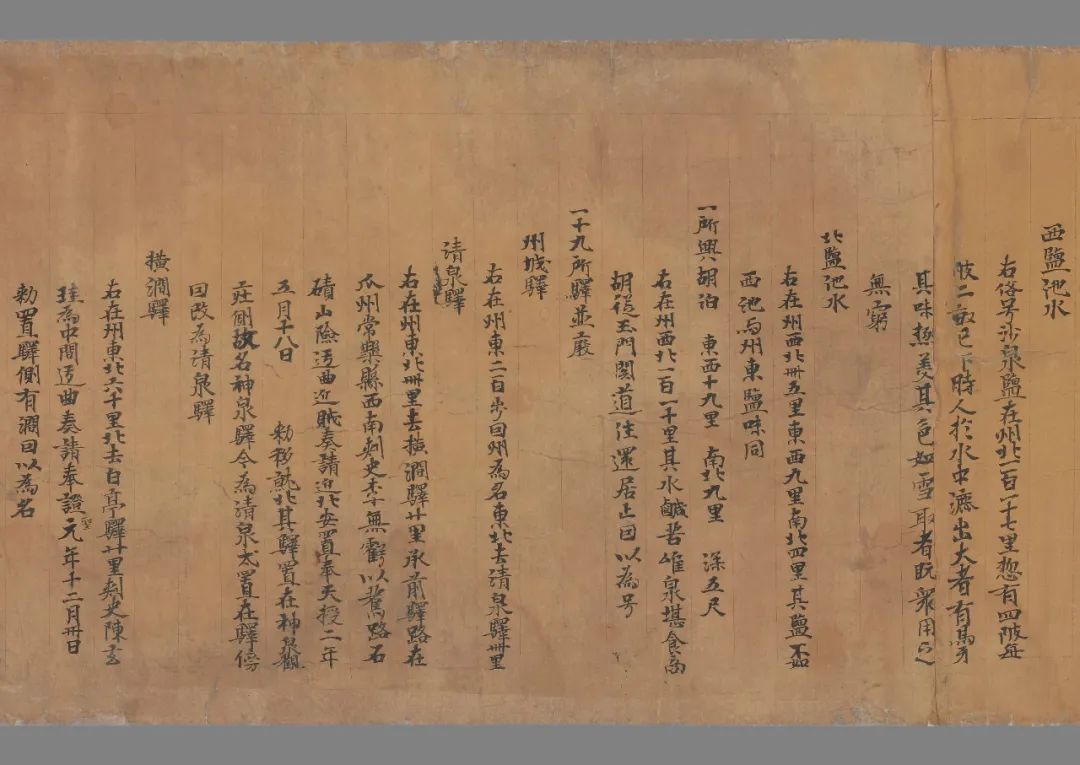 西鹽池水
右俗号沙泉鹽在州北一百一十七里惣有四陂每
陂二畝已下時人於水中漉出大者有馬牙
其味極美其色如雪取者既衆用之
無窮
北鹽池水
右在州西北卌五里東西九里南北四里其鹽不如
西池与州東鹽味同
一所興胡泊 東西十九里 南北九里 深五尺
右在州西北一百一十里其水鹹苦唯泉堪食商
胡從玉門関道往還居止因以為号
一十九所驛並廢
州城驛
右在州東二百步因州為名東北去清泉驛卌里
清泉驛
右在州東北卌里去橫澗驛廿里承前驛路在
瓜州常樂縣西南刺史李無虧以舊路石
磧山險迂曲近賊奏請近北安置奉天授二年
五月十八日 勅移就北其驛置在神泉觀
庄側故名神泉驛今為清泉戍置在驛傍
因改為清泉驛
橫澗驛
右在州東北六十里北去白亭驛廿里刺史陳玄
珪為中間迂曲奏請奉證聖元年十二月卅日
勅置驛側有澗因以為名